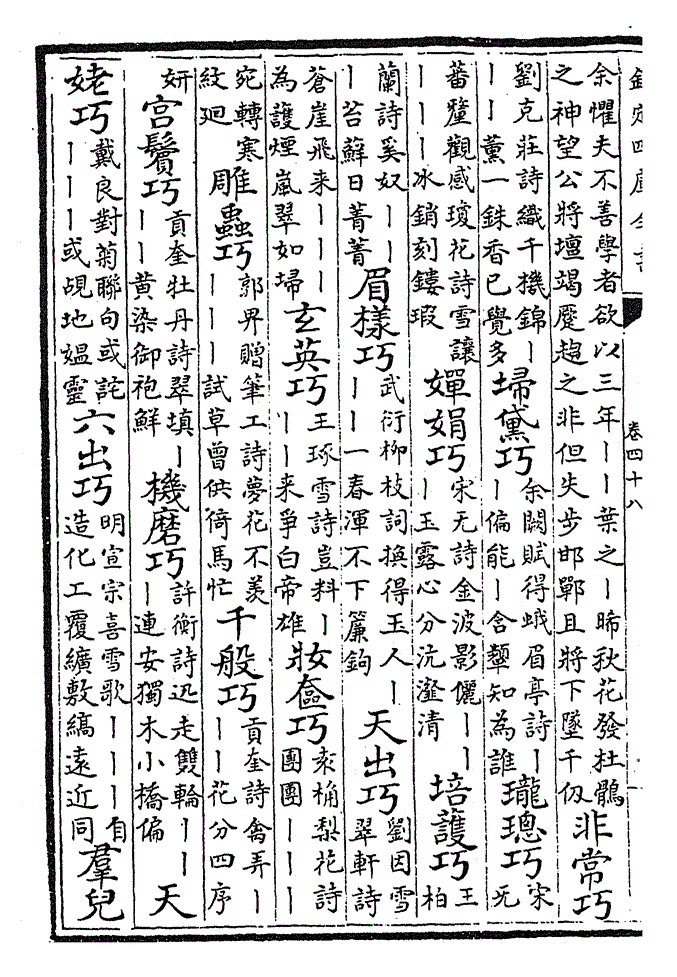 欽定四庫全書 卷四十八
余懼夫不善學者欲以三年丨丨葉之丨晞秋花發杜鵑
之神望公將壇竭蹷趨之非但失步邯鄲且將下墜千仞
非常巧
劉克莊詩織千機錦丨
丨丨薰一銖香已覺多
埽黛巧
余闕賦得蛾眉亭詩丨
丨偏能丨含顰知為誰
瓏璁巧
宋
无
蕃釐觀感瓊花詩雪讓
丨丨丨冰銷刻鏤瑕
嬋娟巧
宋无詩金波影儷丨丨
丨玉露心分沆瀣清
培護巧
王
柏
蘭詩奚奴丨丨
丨苔蘚日菁菁
眉樣巧
武衍柳枝詞換得玉人丨
丨丨一春渾不下簾鉤
天出巧
劉因雪
翠軒詩
蒼崖飛来丨丨丨
為護煙嵐翠如埽
玄英巧
王琢雪詩豈料丨
丨丨来爭白帝雄
妝奩巧
袁桷梨花詩
團團丨丨丨
宛轉寒
紋廻
雕蟲巧
郭畀贈筆工詩夢花不羨
丨丨丨試草曾供倚馬忙
千般巧
貢奎詩禽弄丨
丨丨花分四序
妍
宫鬢巧
貢奎牡丹詩翠填丨
丨丨黃染御袍鮮
機磨巧
許衡詩迅走雙輪丨丨
丨連安獨木小橋偏
天
姥巧
戴良對菊聯句或詫
丨丨丨或覘地媪靈
六出巧
明宣宗喜雪歌丨丨丨自
造化工覆纊敷縞遠近同
羣兒